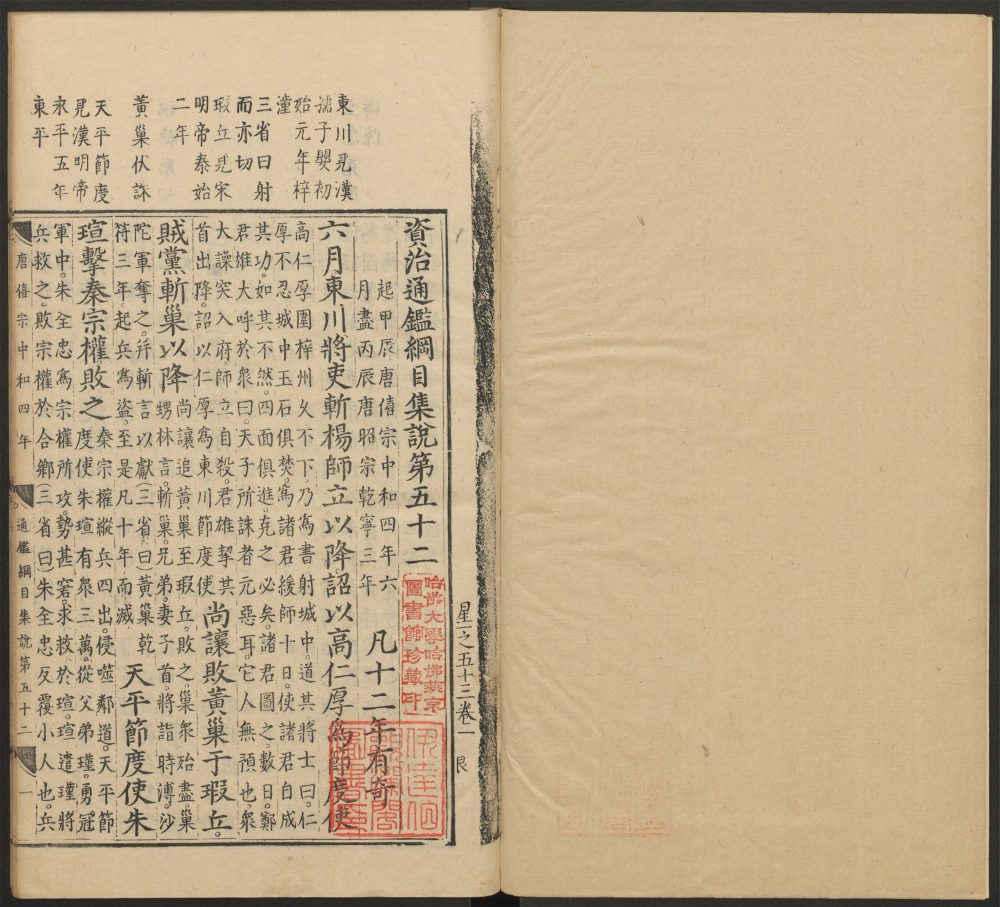 東川見漢
孺子嬰初
始元年梓
潼
三省曰射
而亦切
瑕丘見宋
明帝泰始
二年
黃巢伏誅
天平節度
見漢明帝
永平五年
東平
星一之五十三卷一
資治通鑑綱目集說第五十二
起甲辰唐僖宗中和四年六
月盡丙辰唐昭宗乾寧三年
凡十二年有奇
六月東川將吏斬楊師立以降詔以高仁厚為節度使
高仁厚圍梓州久不下乃為書射城中道其將士曰仁
厚不忍城中玉石俱焚為諸君緩師十日使諸君自成
其功如其不然四面俱進克之必矣諸君圖之數日鄭
君雄大呼於眾曰天子所誅者元惡耳它人無預也眾
大譟突入府師立自殺君雄挈其
首出降詔以仁厚為東川節度使
尚讓敗黃巢于瑕丘
賊黨斬巢以降
尚讓追黃巢至瑕丘敗之巢眾殆盡巢
甥林言斬巢兄弟妻子首將詣時溥沙
陀軍奪之并斬言以獻(三省曰)黃巢乾
符三年起兵為盜至是凡十年而滅
天平節度使朱
瑄擊秦宗權敗之
秦宗權縱兵四出侵噬鄰道天平節
度使朱瑄有眾三萬從父弟瑾勇冠
軍中朱全忠為宗權所攻勢甚窘求救於瑄瑄遣瑾將
兵救之敗宗權於合鄉(三省曰)朱全忠反覆小人也兵
唐僖宗中和四年
通鑑綱目集說第五十二
一
哈佛大學哈佛燕京
圖書館珍藏印